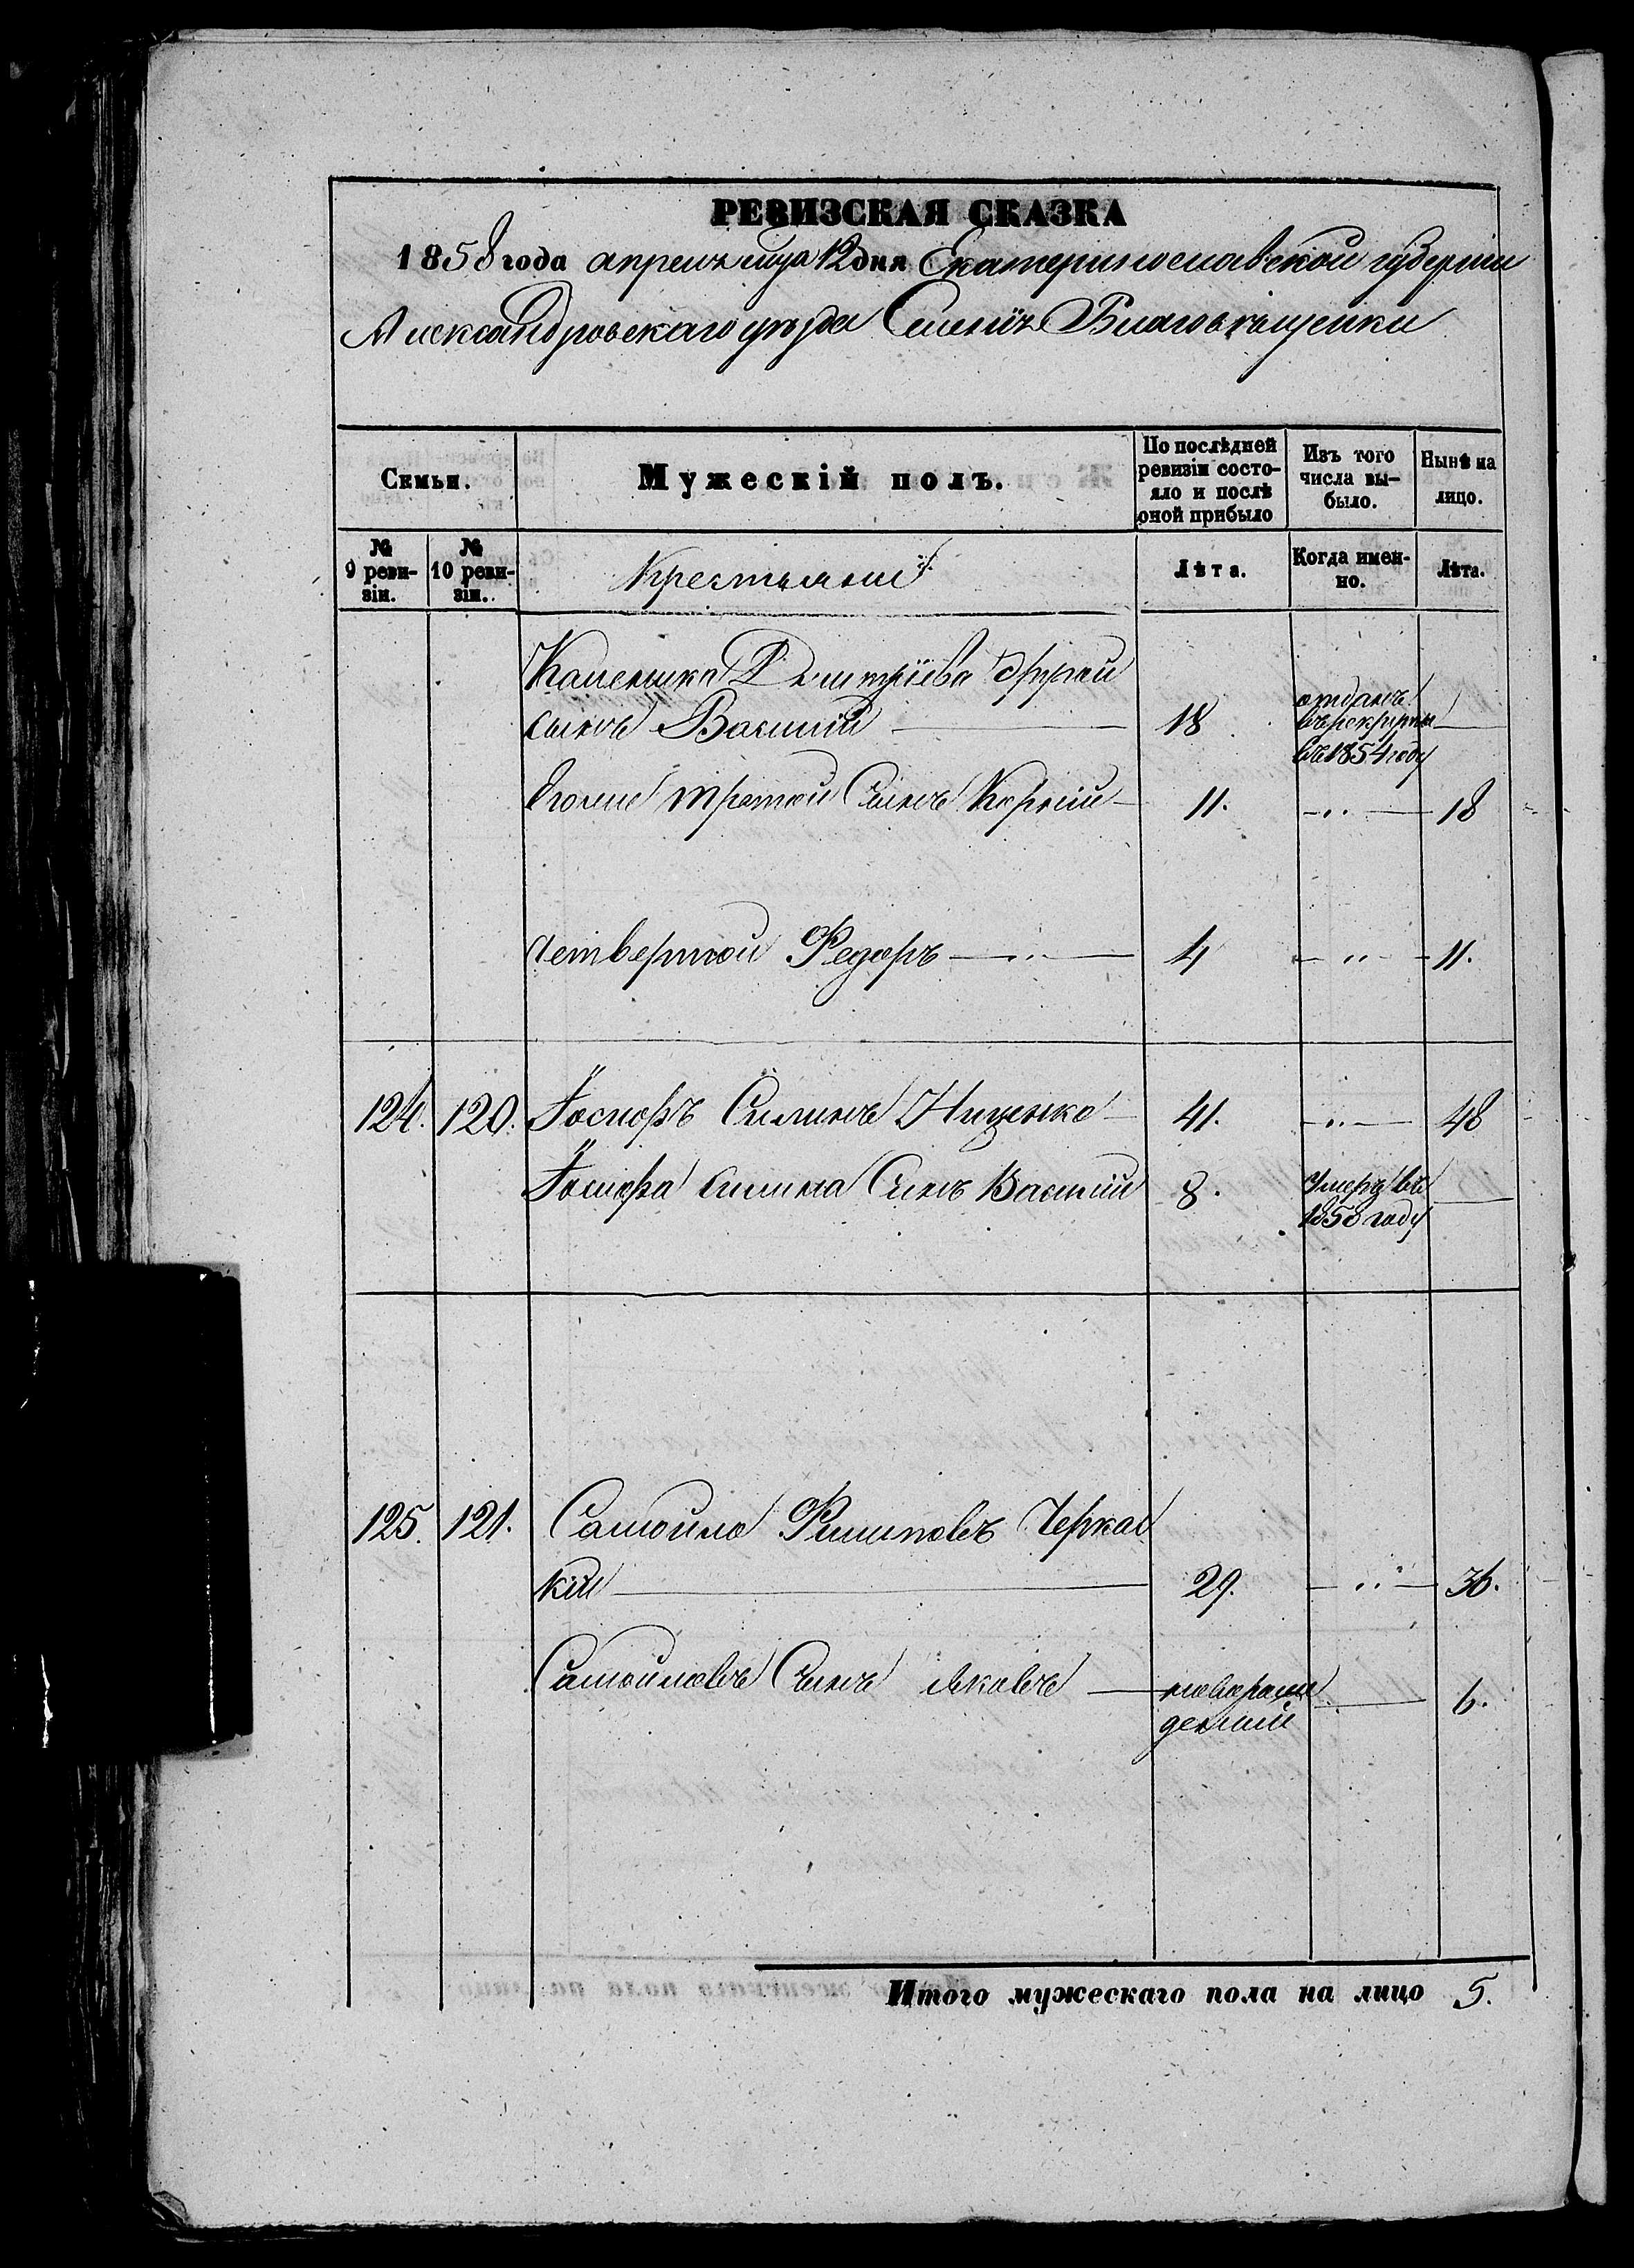 РЕВИЗСКАЯ СКАЗКА
1858 года апреля мца 12 дня Екатеринославской губерніи
Александровскаго уезда Селенія Благовещенки
Семьи.
Мужескій полъ.
По послѣдней ревизіи состояло и послѣ оной прибыло
Изъ того числа вы-было.
Нынѣ на лицо.
№ 9 реви-зіи.
№ 10 реви-зіи.
Крестьяни
Лѣта.
Когда имен-но.
Лѣта.
Дмитріева другой
сынъ Василій 18 отданъ въ рекруты въ 1854 году
третой Сынъ 11. 18
четвертой Федоръ 4 11.
124. 120. Іосифъ Силинъ Ниценко 41. 48
Іосифа Силина Синъ Василій 8. Умеръ въ 1858 году
125. 121. Самойло Филиповъ Черкас
кій 29. 36.
Самойловъ Сынъ Яковъ новорож денній 6.
Итого мужескаго пола на лицо 5.